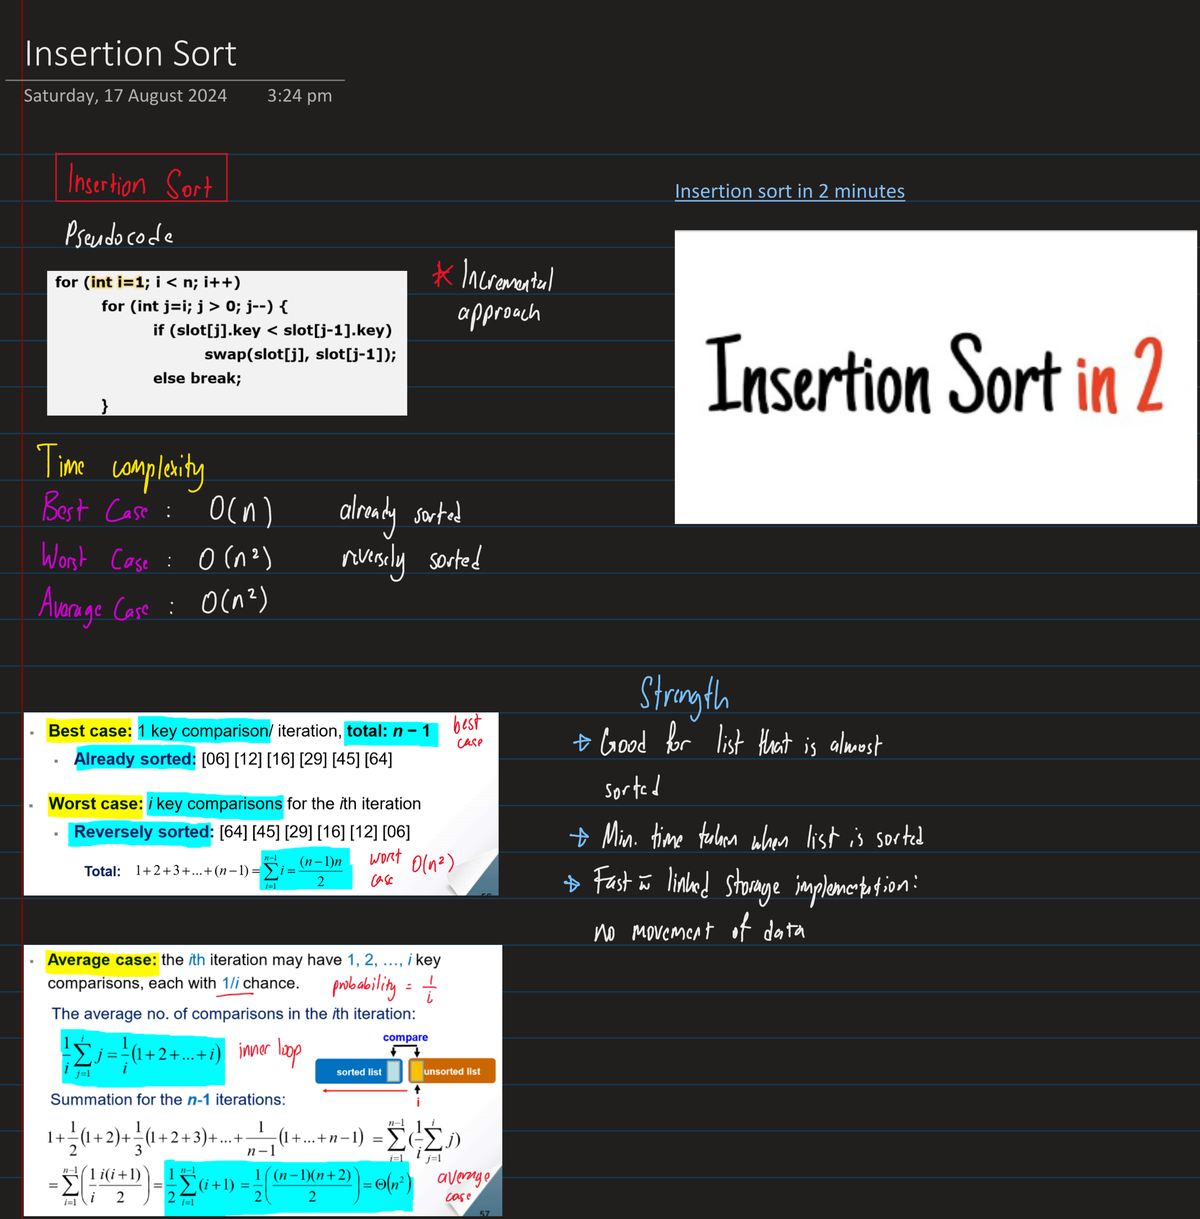 Insertion Sort
Saturday, 17 August 2024 3:24 pm
Insertion Sort
Pseudocode
for (int i=1; i < n; i++)
for (int j=i; j > 0; j--) {
if (slot[j].key < slot[j-1].key)
swap(slot[j], slot[j-1]);
else break;
}
* Incremental
approach
Insertion sort in 2 minutes
Insertion Sort in 2
Time complexity
Best Case : O(n) already sorted
Worst Case : O(n²) reversely sorted
Avarage Case : O(n²)
• Best case: 1 key comparison/ iteration, total: n − 1
best
case
• Already sorted: [06] [12] [16] [29] [45] [64]
• Worst case: i key comparisons for the ith iteration
• Reversely sorted: [64] [45] [29] [16] [12] [06]
Total: 1+2+3+...+(n−1) = ∑_{i=1}^{n−1} i = (n−1)n / 2
worst
case
O(n²)
• Average case: the ith iteration may have 1, 2, …, i key
comparisons, each with 1/i chance.
probability = 1/i
The average no. of comparisons in the ith iteration:
1/i ∑_{j=1}^{i} j = 1/i (1+2+...+i)
inner loop
compare
sorted list
unsorted list
i
Summation for the n-1 iterations:
1+ 1/2 (1+2)+ 1/3 (1+2+3)+...+ 1/(n−1) (1+...+n−1) = ∑_{i=1}^{n−1} ( 1/i ∑_{j=1}^{i} j)
= ∑_{i=1}^{n−1} ( 1/i i(i+1)/2 ) = 1/2 ∑_{i=1}^{n−1} (i+1) = 1/2 ( (n−1)(n+2) / 2 ) = Θ(n²)
average
case
57
Strength
→ Good for list that is almost
sorted
→ Min. time taken when list is sorted
→ Fast w linked storage implementation:
no movement of data